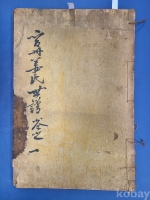 姜氏世譜卷之一
kobay